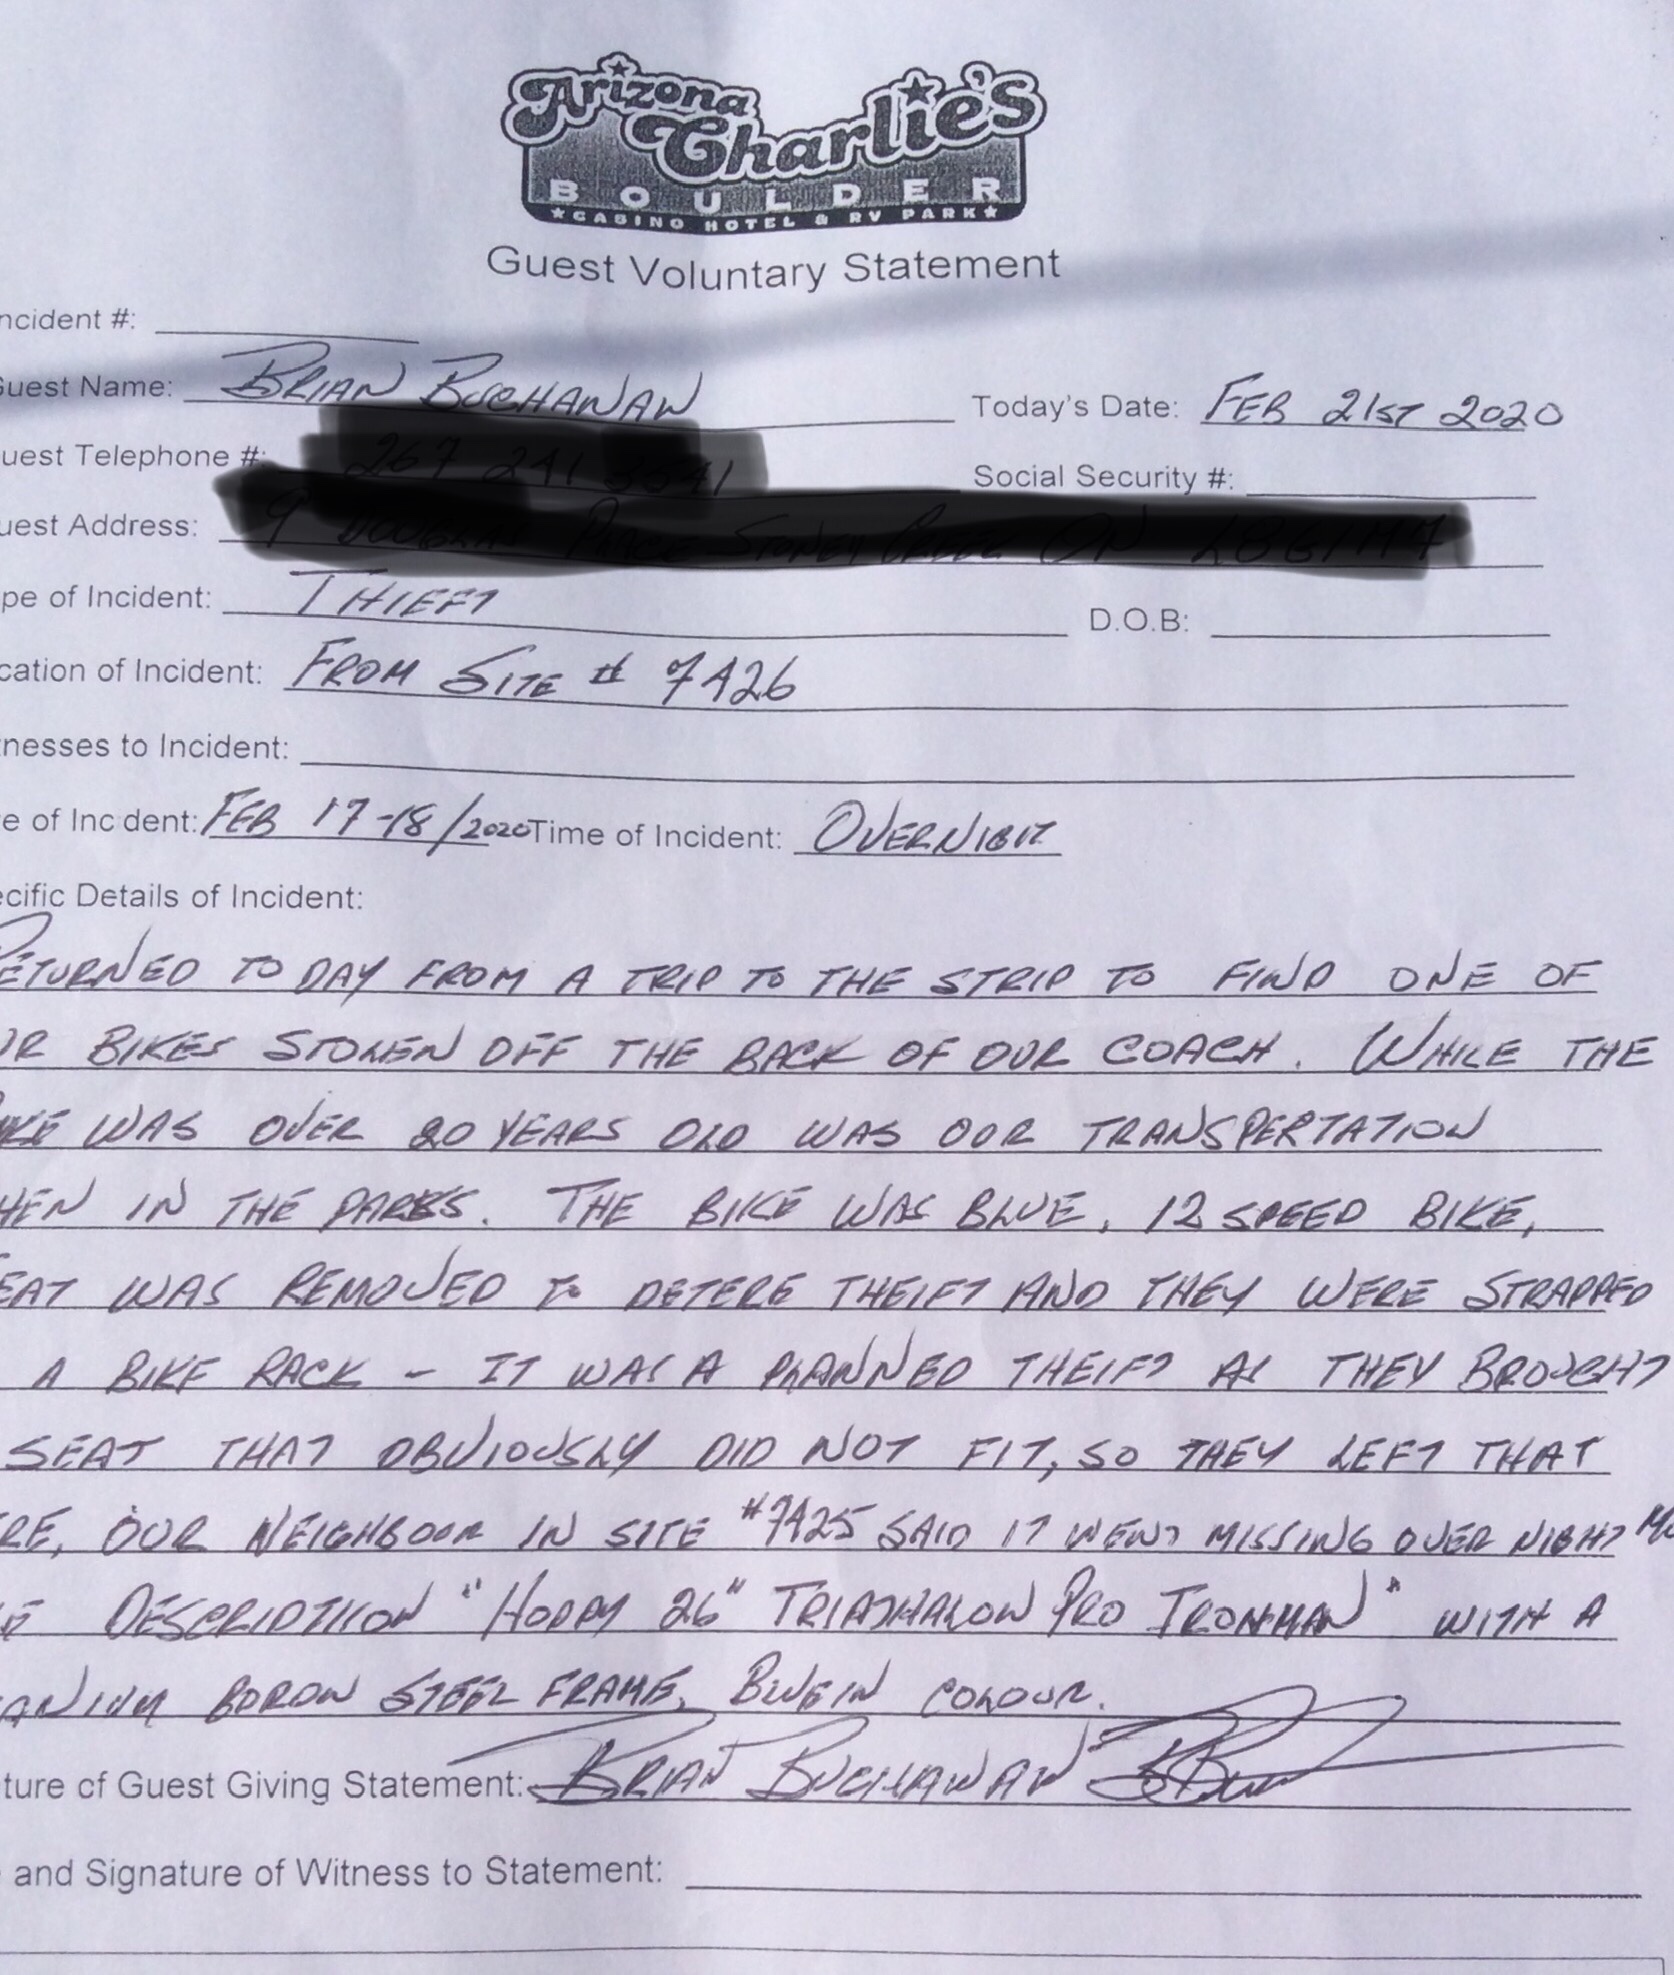 Arizona
Charlie's
BOULDER
★CASINO HOTEL & RV PARK★
Guest Voluntary Statement
ncident #:
Guest Name: BRIAN BUCHANAN Today's Date: FEB 21ST 2020
uest Telephone #: Social Security #:
uest Address:
pe of Incident: THIEFT D.O.B:
cation of Incident: FROM SITE # 7A26
tnesses to Incident:
e of Incident: FEB 17-18/2020 Time of Incident: OVERNIGHT
ecific Details of Incident:
RETURNED TODAY FROM A TRIP TO THE STRIP TO FIND ONE OF
UR BIKES STOLEN OFF THE BACK OF OUR COACH. WHILE THE
IKE WAS OVER 20 YEARS OLD WAS OUR TRANSPERTATION
HEN IN THE PARKS. THE BIKE WAS BLUE, 12 SPEED BIKE,
EAT WAS REMOVED TO DETERE THEIFT AND THEY WERE STRAPPED
A BIKE RACK - IT WAS A PLANNED THEIFT AS THEY BROUGHT
SEAT THAT OBVIOUSLY DID NOT FIT, SO THEY LEFT THAT
RE, OUR NEIGHBOUR IN SITE #7A25 SAID IT WENT MISSING OVER NIGHT
E DESCRIPTIION "26" TRIATHALON PRO IRONMAN" WITH A
ANIUM BORON STEEL FRAME, BLUE IN COLOUR.
ture of Guest Giving Statement: BRIAN BUCHANAN
and Signature of Witness to Statement: